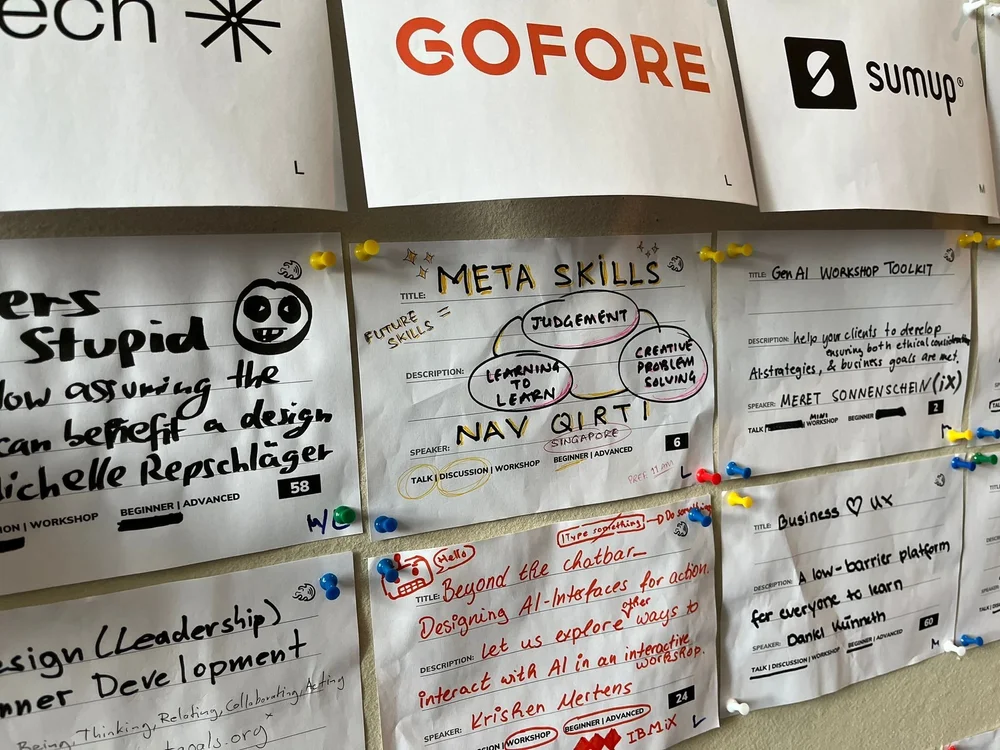 ech
L
GOFORE
L
sumup®
M
ers
Stupid
How assuring the
can benefit a design
Michelle Repschläger
ION | WORKSHOP
BEGINNER | ADVANCED
58
META SKILLS
TITLE:
FUTURE
SKILLS =
JUDGEMENT
DESCRIPTION:
LEARNING
TO
LEARN
CREATIVE
PROBLEM
SOLVING
SPEAKER: NAV QIRTI
SINGAPORE
TALK | DISCUSSION | WORKSHOP
BEGINNER | ADVANCED
6
PREF. 11 AM
L
TITLE: GenAI WORKSHOP TOOLKIT
DESCRIPTION: help your clients to develop
ensuring both ethical
AI-strategies, & business goals are met.
SPEAKER: MERET SONNENSCHEIN (iX)
MINI
TALK | WORKSHOP
BEGINNER
2
esign (Leadership)
nner Development
Being, Thinking, Relating, Collaborating, Acting
goals.org
Hello
Type something
Do something
TITLE: Beyond the chatbar_
Designing AI-Interfaces for action.
DESCRIPTION: Let us explore other ways to
interact with AI in an interactive
workshop.
SPEAKER: Krishen Mertens
24
SION | WORKSHOP
BEGINNER | ADVANCED
IBM iX
L
TITLE: Business ♡ UX
DESCRIPTION: A low-barrier platform
for everyone to learn
SPEAKER: Daniel Künneth
60
TALK | DISCUSSION | WORKSHOP
BEGINNER | ADVANCED
M